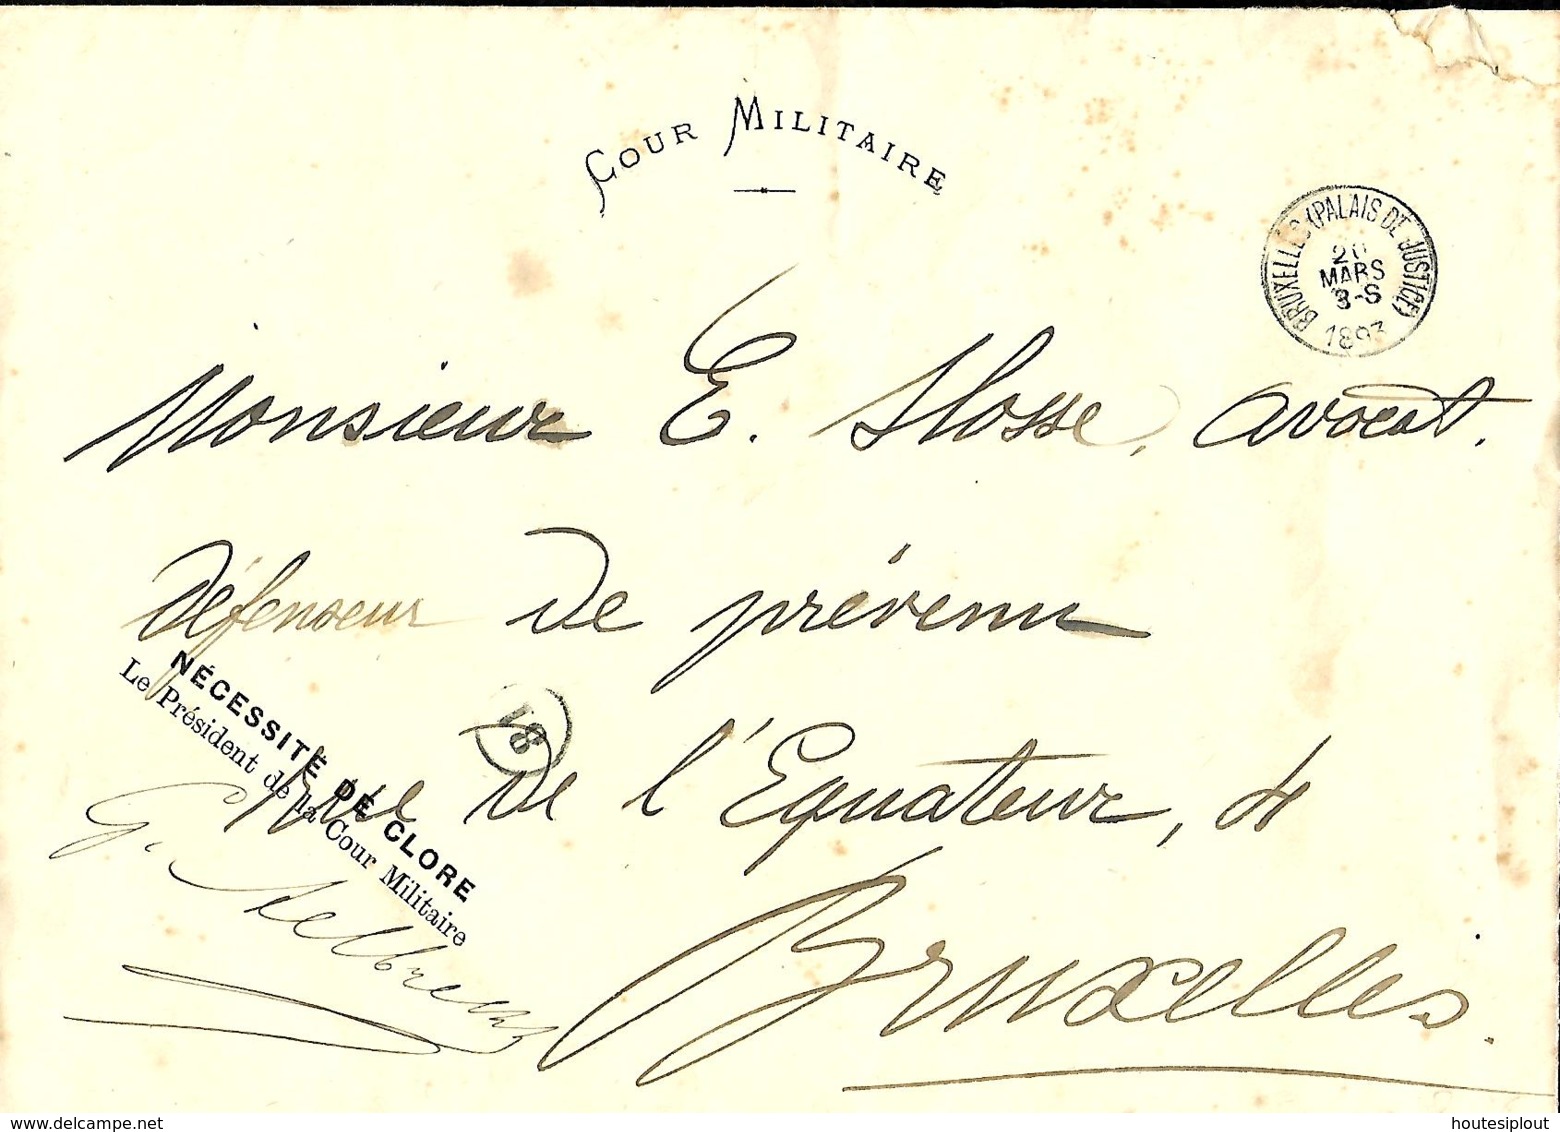 COUR MILITAIRE
BRUXELLES (PALAIS DE JUSTICE)
20
MARS
3-S
1893
Monsieur E. Slosse, avocat.
défenseur de prévenu
NÉCESSITÉ DE CLORE
Le Président de la Cour Militaire
18
rue de l'Equateur, 4
Bruxelles.
www.delcampe.net
houtesiplout